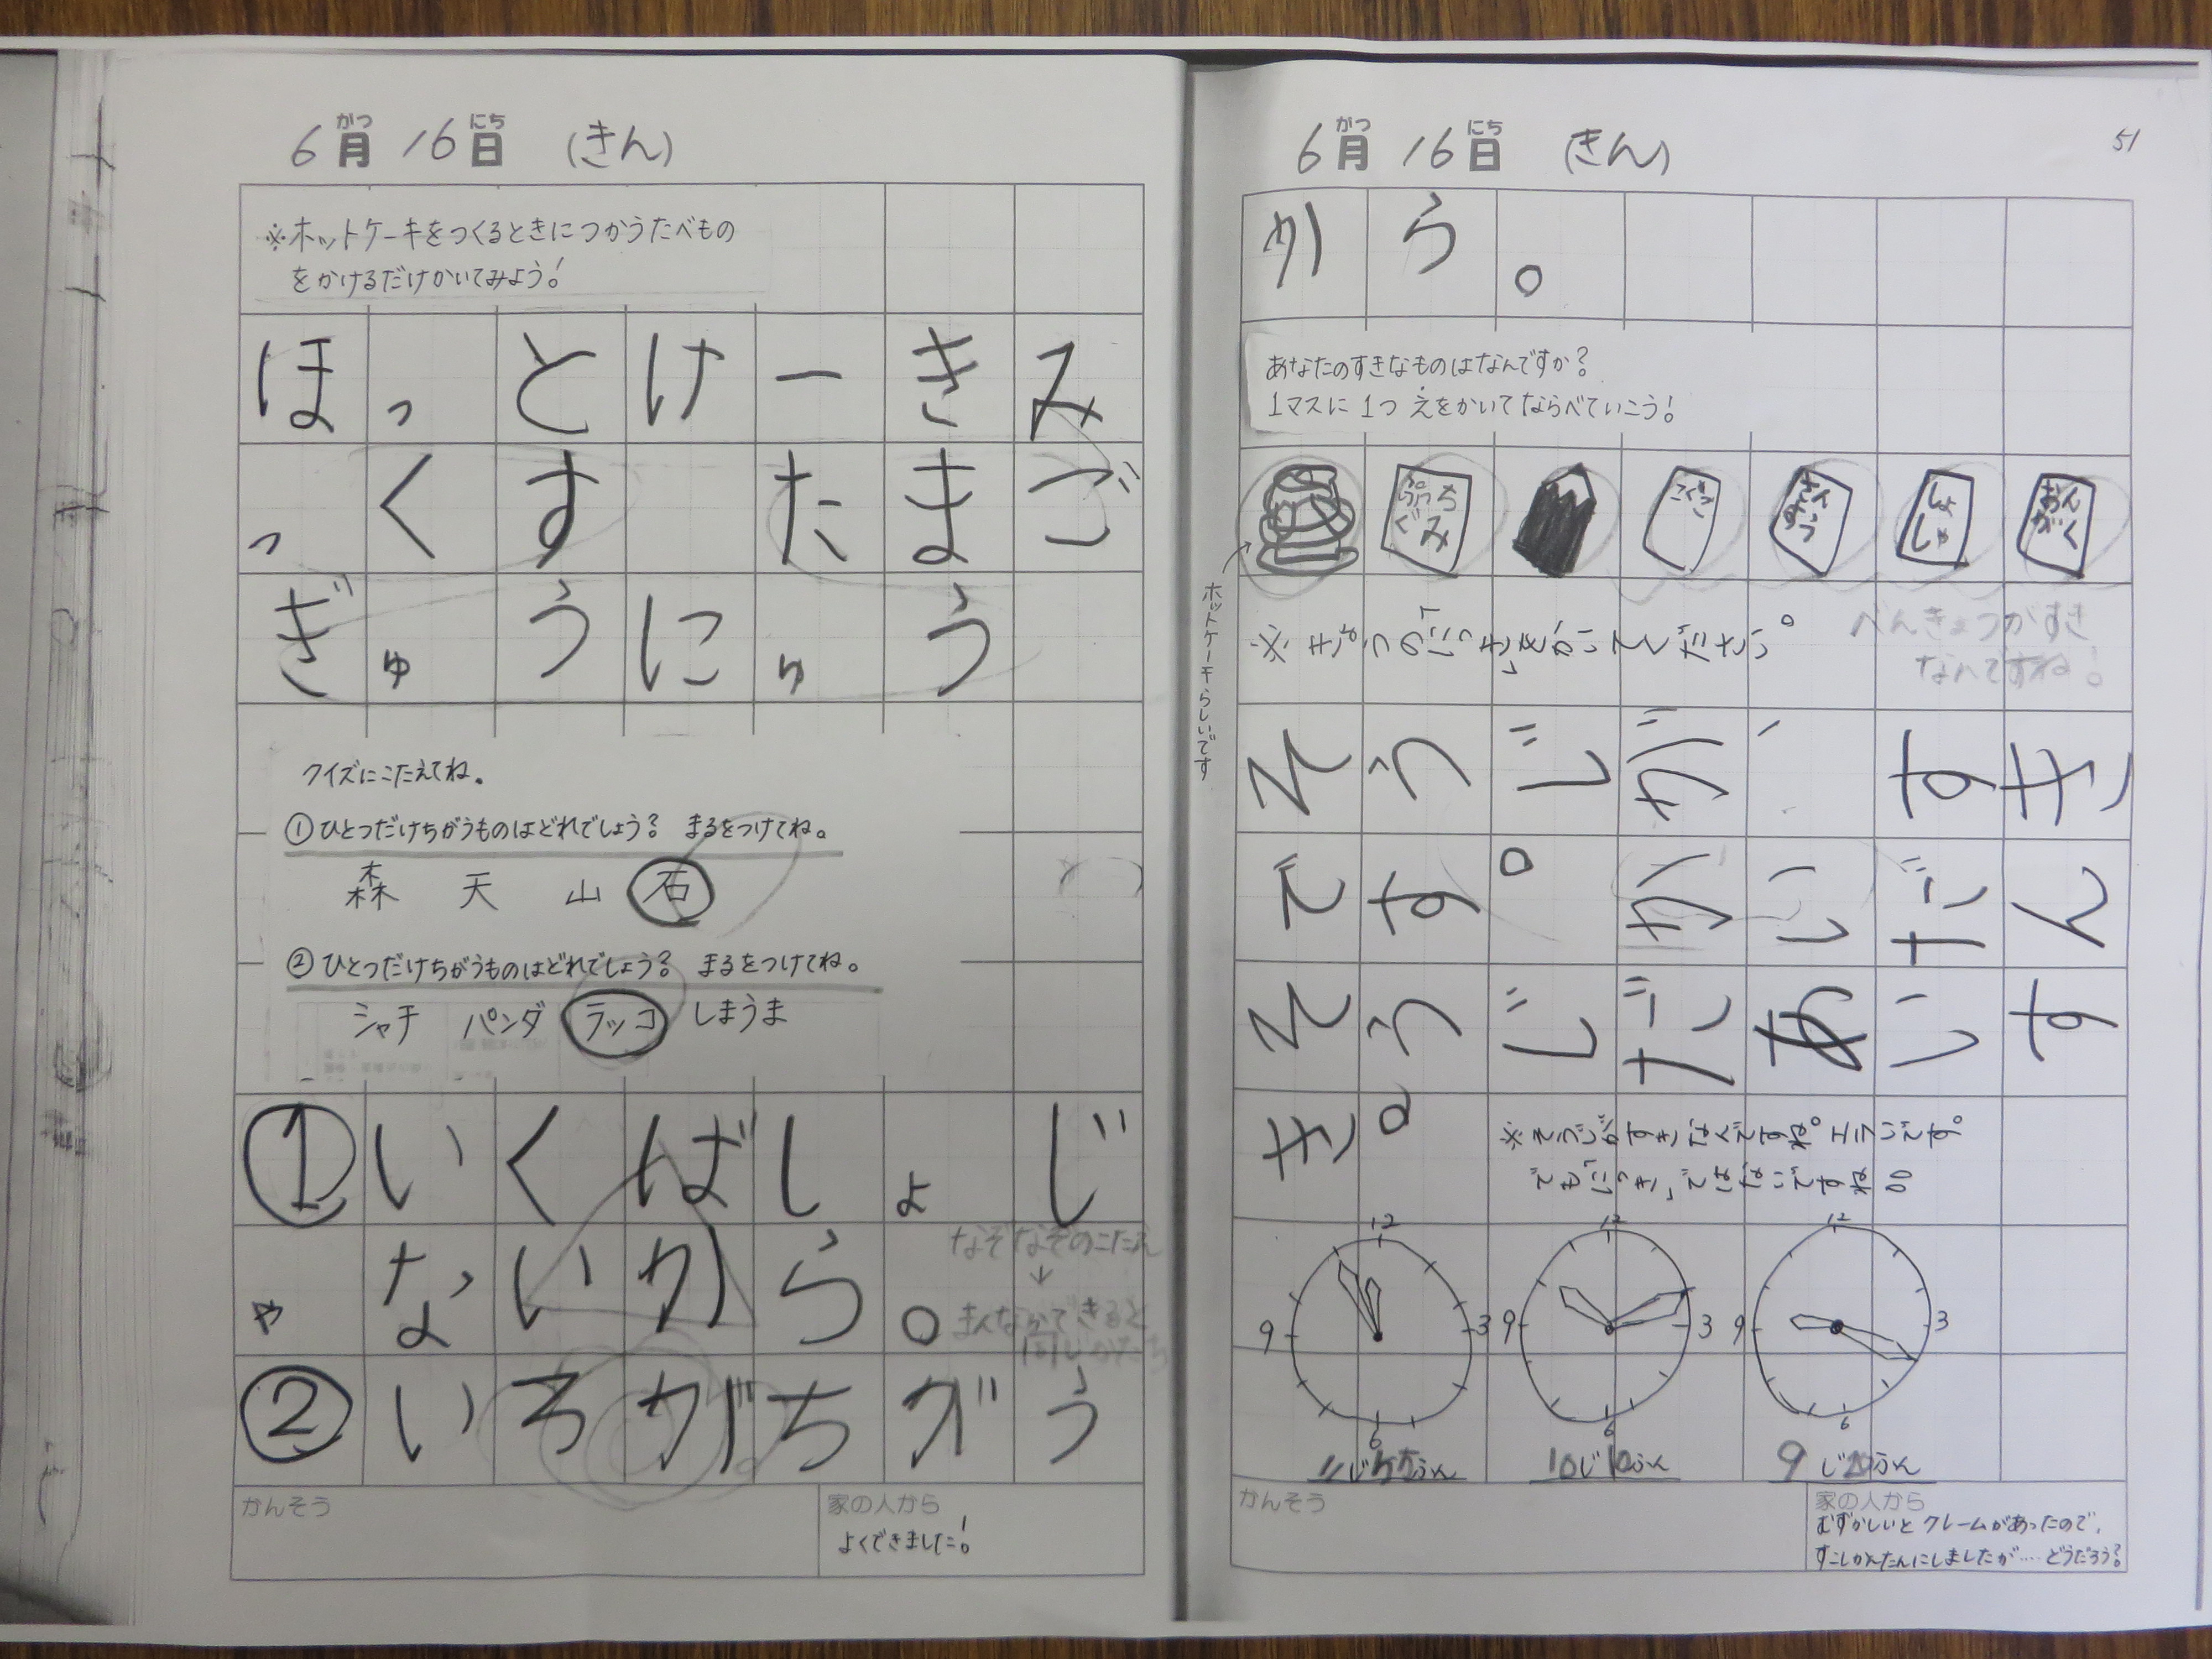 6月 16日 (きん)
がつ にち
※ホットケーキをつくるときにつかうたべもの
をかけるだけかいてみよう!
ほっとけーきみ
っくす たまご
ぎゅうにゅう
クイズにこたえてね。
①ひとつだけちがうものはどれでしょう? まるをつけてね。
森 天 山 石
②ひとつだけちがうものはどれでしょう? まるをつけてね。
シャチ パンダ ラッコ しまうま
①いくばしょじ
ゃないから。
なぞなぞのこたえ
↓
まんなかできると
同じかたち
②いろがちがう
かんそう
家の人から
よくできました!
6月 16日 (きん)
がつ にち
51
から。
あなたのすきなものはなんですか?
1マスに1つ えをかいてならべていこう!
ぷっちぐみ
こくご
さんすう
しょしゃ
おんがく
ホットケーキらしいです
※きょうの「にっき」をかいてください。
べんきょうがすき
なんですね!
そうじが、すき
です。かいだん
そうじだあいす
き。
※そうじがすきなんですね。エライです。
でも「にっき」ではないですね
12 3 6 9
12 3 6 9
12 3 6 9
11じ55ふん
10じ10ふん
9じ20ふん
かんそう
家の人から
むずかしいとクレームがあったので、
すこしかんたんにしましたが…. どうだろう?